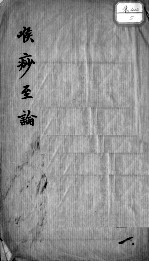 喉痧至論
一